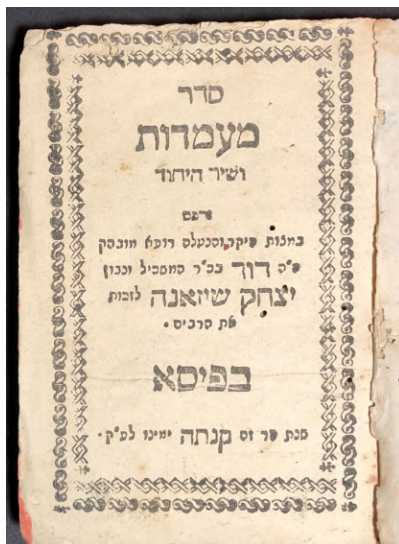 סדר
מעמדות
ושיר היחוד
נדפס
במצות היקר והנעלה רופא מובהק
כ״ה דוד בכ״ר המשכיל ונבון
יצחק שיזאנה לזכות
את הרבים •
בפיסא
שנת הר זה קנתה ימינו לפ״ק •